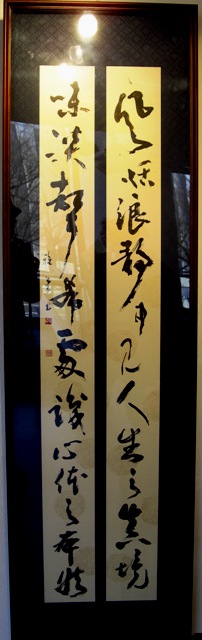 風恬浪靜中見人生之真境
味淡聲希處識心体之本然